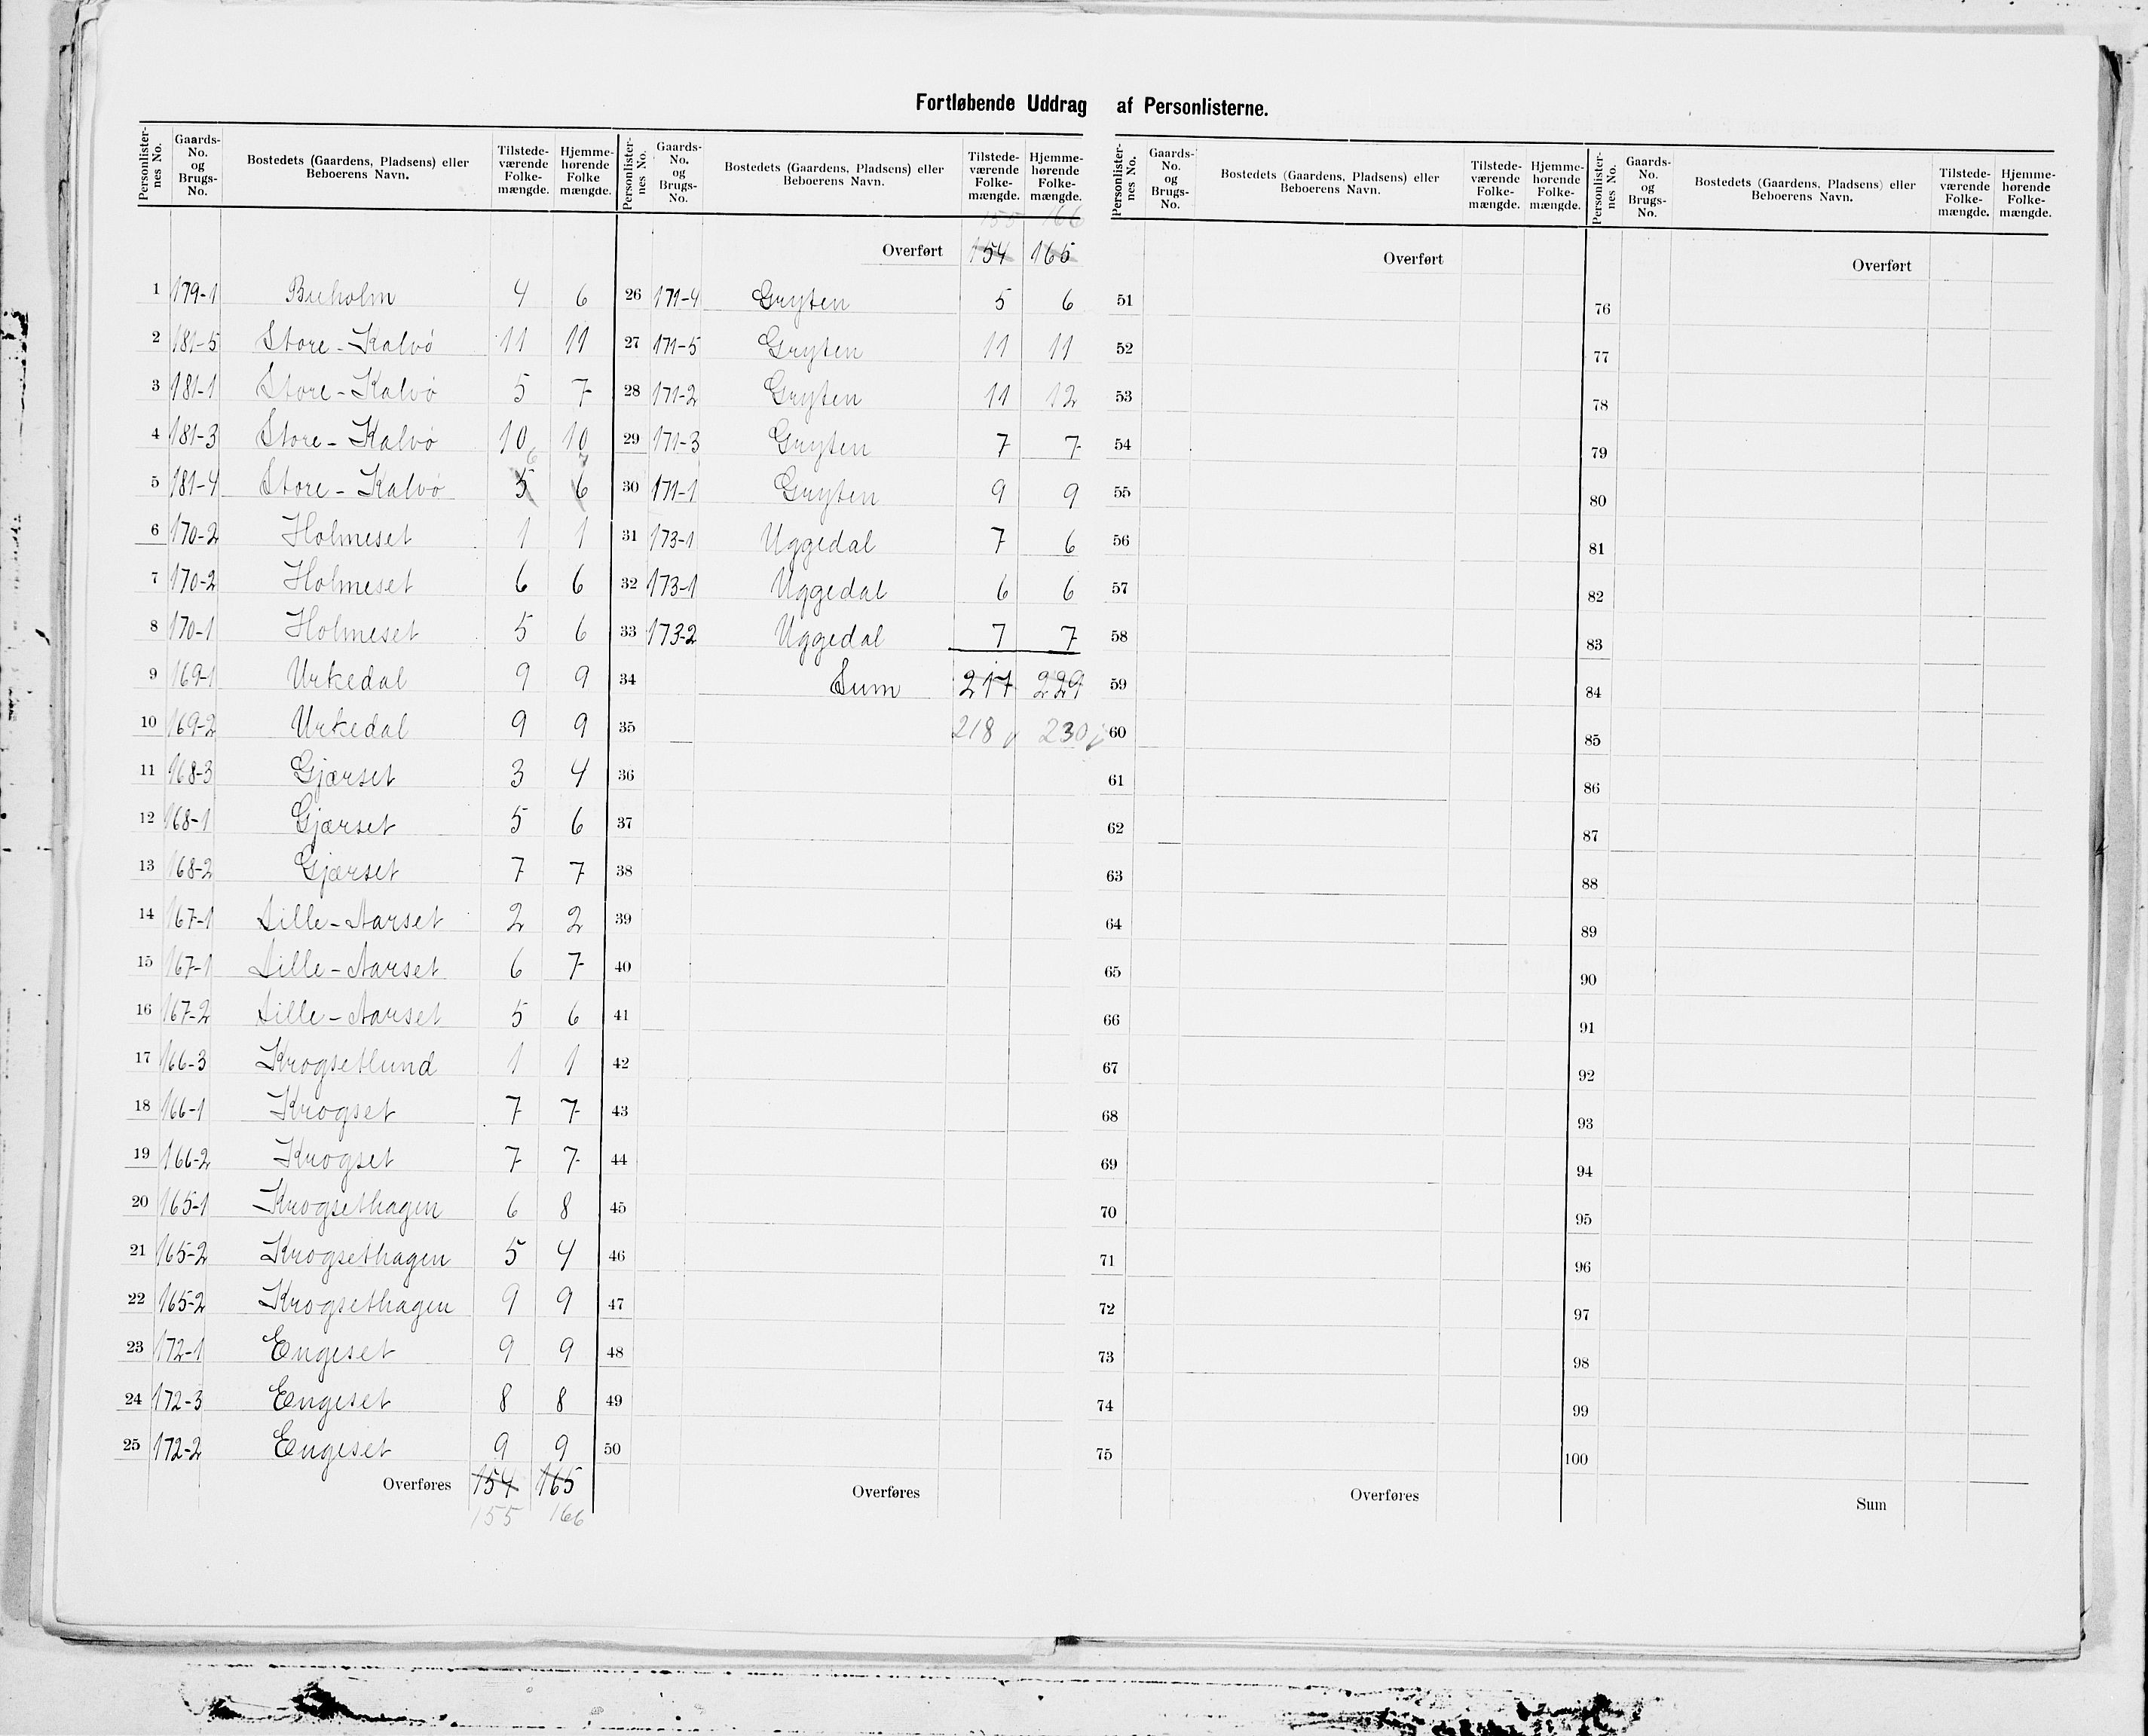 Fortløbende Uddrag af Personlisterne.
Personlisternes No. Gaards-No. og Brugs-No. Bostedets (Gaardens, Pladsens) eller Beboerens Navn. Tilstedeværende Folkemængde. Hjemmehørende Folke mængde.
1 179-1 Buholm 4 6
2 181-5 Store-Kalvø 11 11
3 181-1 Store-Kalvø 5 7
4 181-3 Store-Kalvø 10 10
6 7
5 181-4 Store-Kalvø 5 6
6 170-2 Holmeset 1 1
7 170-2 Holmeset 6 6
8 170-1 Holmeset 5 6
9 169-1 Urkedal 9 9
10 169-2 Urkedal 9 9
11 168-3 Gjærset 3 4
12 168-1 Gjærset 5 6
13 168-2 Gjærset 7 7
14 167-1 Lille-Aarset 2 2
15 167-1 Lille-Aarset 6 7
16 167-2 Lille-Aarset 5 6
17 166-3 Krogsetlund 1 1
18 166-1 Krogset 7 7
19 166-2 Krogset 7 7
20 165-1 Krogsethagen 6 8
21 165-2 Krogsethagen 5 4
22 165-2 Krogsethagen 9 9
23 172-1 Engeset 9 9
24 172-3 Engeset 8 8
25 172-2 Engeset 9 9
Overføres 154 165
155 166
Personlisternes No. Gaards-No. og Brugs-No. Bostedets (Gaardens, Pladsens) eller Beboerens Navn. Tilstedeværende Folkemængde. Hjemmehørende Folkemængde.
155 166
Overført 154 165
26 171-4 Gryten 5 6
27 171-5 Gryten 11 11
28 171-2 Gryten 11 12
29 171-3 Gryten 7 7
30 171-1 Gryten 9 9
31 173-1 Uggedal 7 6
32 173-1 Uggedal 6 6
33 173-2 Uggedal 7 7
34 Sum 217 229
35 218 230
36
37
38
39
40
41
42
43
44
45
46
47
48
49
50
Overføres
Personlisternes No. Gaards-No. og Brugs-No. Bostedets (Gaardens, Pladsens) eller Beboerens Navn. Tilstedeværende Folkemængde. Hjemmehørende Folkemængde.
Overført
51
52
53
54
55
56
57
58
59
60
61
62
63
64
65
66
67
68
69
70
71
72
73
74
75
Overføres
Personlisternes No. Gaards-No. og Brugs-No. Bostedets (Gaardens, Pladsens) eller Beboerens Navn. Tilstedeværende Folkemængde. Hjemmehørende Folkemængde.
Overført
76
77
78
79
80
81
82
83
84
85
86
87
88
89
90
91
92
93
94
95
96
97
98
99
100
Sum